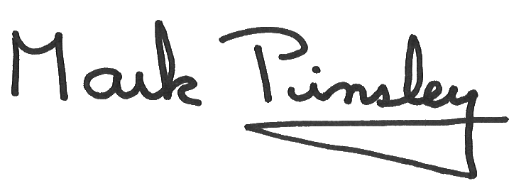 Mark Pinsley